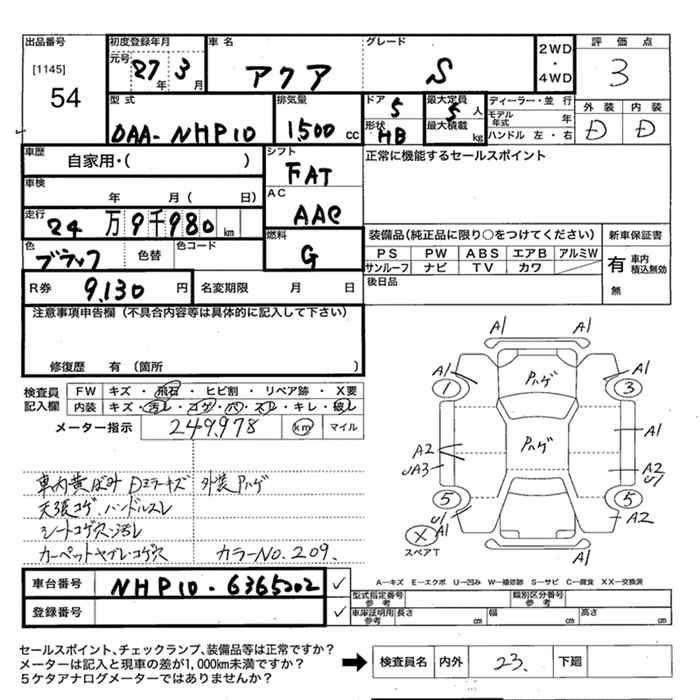 出品番号 初度登録年月 車名 グレード 評価点
[1145] 元号 27年 3月 アクア S 2WD・4WD 3
54
型式 排気量 ドア 5 最大定員 5人 ディーラー・並行 外装 内装
DAA-NHP10 1500cc 形状 HB 最大積載 kg モデル年式 年 D D
ハンドル 左・右
車歴 自家用・( ) シフト FAT 正常に機能するセールスポイント
車検 年 月( 日) AC AAC
走行 24万9千980km
色 ブラック 色替 色コード 燃料 G 装備品(純正品に限り○をつけてください) 新車保証書
PS PW ABS エアB アルミW 有 車内積込無効
サンルーフ ナビ TV カワ
R券 9,130円 名変期限 月 日 後日品 無
注意事項申告欄(不具合内容等は具体的に記入して下さい)
修復歴 有(箇所 )
検査員記入欄 FW キズ・飛石・ヒビ割・リペア跡・X要
内装 キズ・汚レ・コゲ・穴・スレ・キレ・破レ
メーター指示 249,978 km マイル
車内黄ばみ Dミラーキズ 外装Pハゲ
天張コゲ、ハンドルスレ
シートコゲ穴・汚レ
カーペットヤブレ・コゲ穴 カラーNO.209.
A1 A1
A1 Pハゲ A1
1 3
A1
A2 Pハゲ A2
UA3 U1
5 5
U1 A1 A2
X
スペアT A1
A―キズ E―エクボ U―凹み W―補修跡 S―サビ C―腐食 XX―交換済
車台番号 NHP10-6365202 ✓ 型式指定番号 参考 類別区分番号 参考
登録番号 ✓ 車庫証明用 参考 長さ cm 幅 cm 高さ cm
セールスポイント、チェックランプ、装備品等は正常ですか?
メーターは記入と現車の差が1,000km未満ですか? ➡ 検査員名 内外 23. 下廻
5ケタアナログメーターではありませんか?